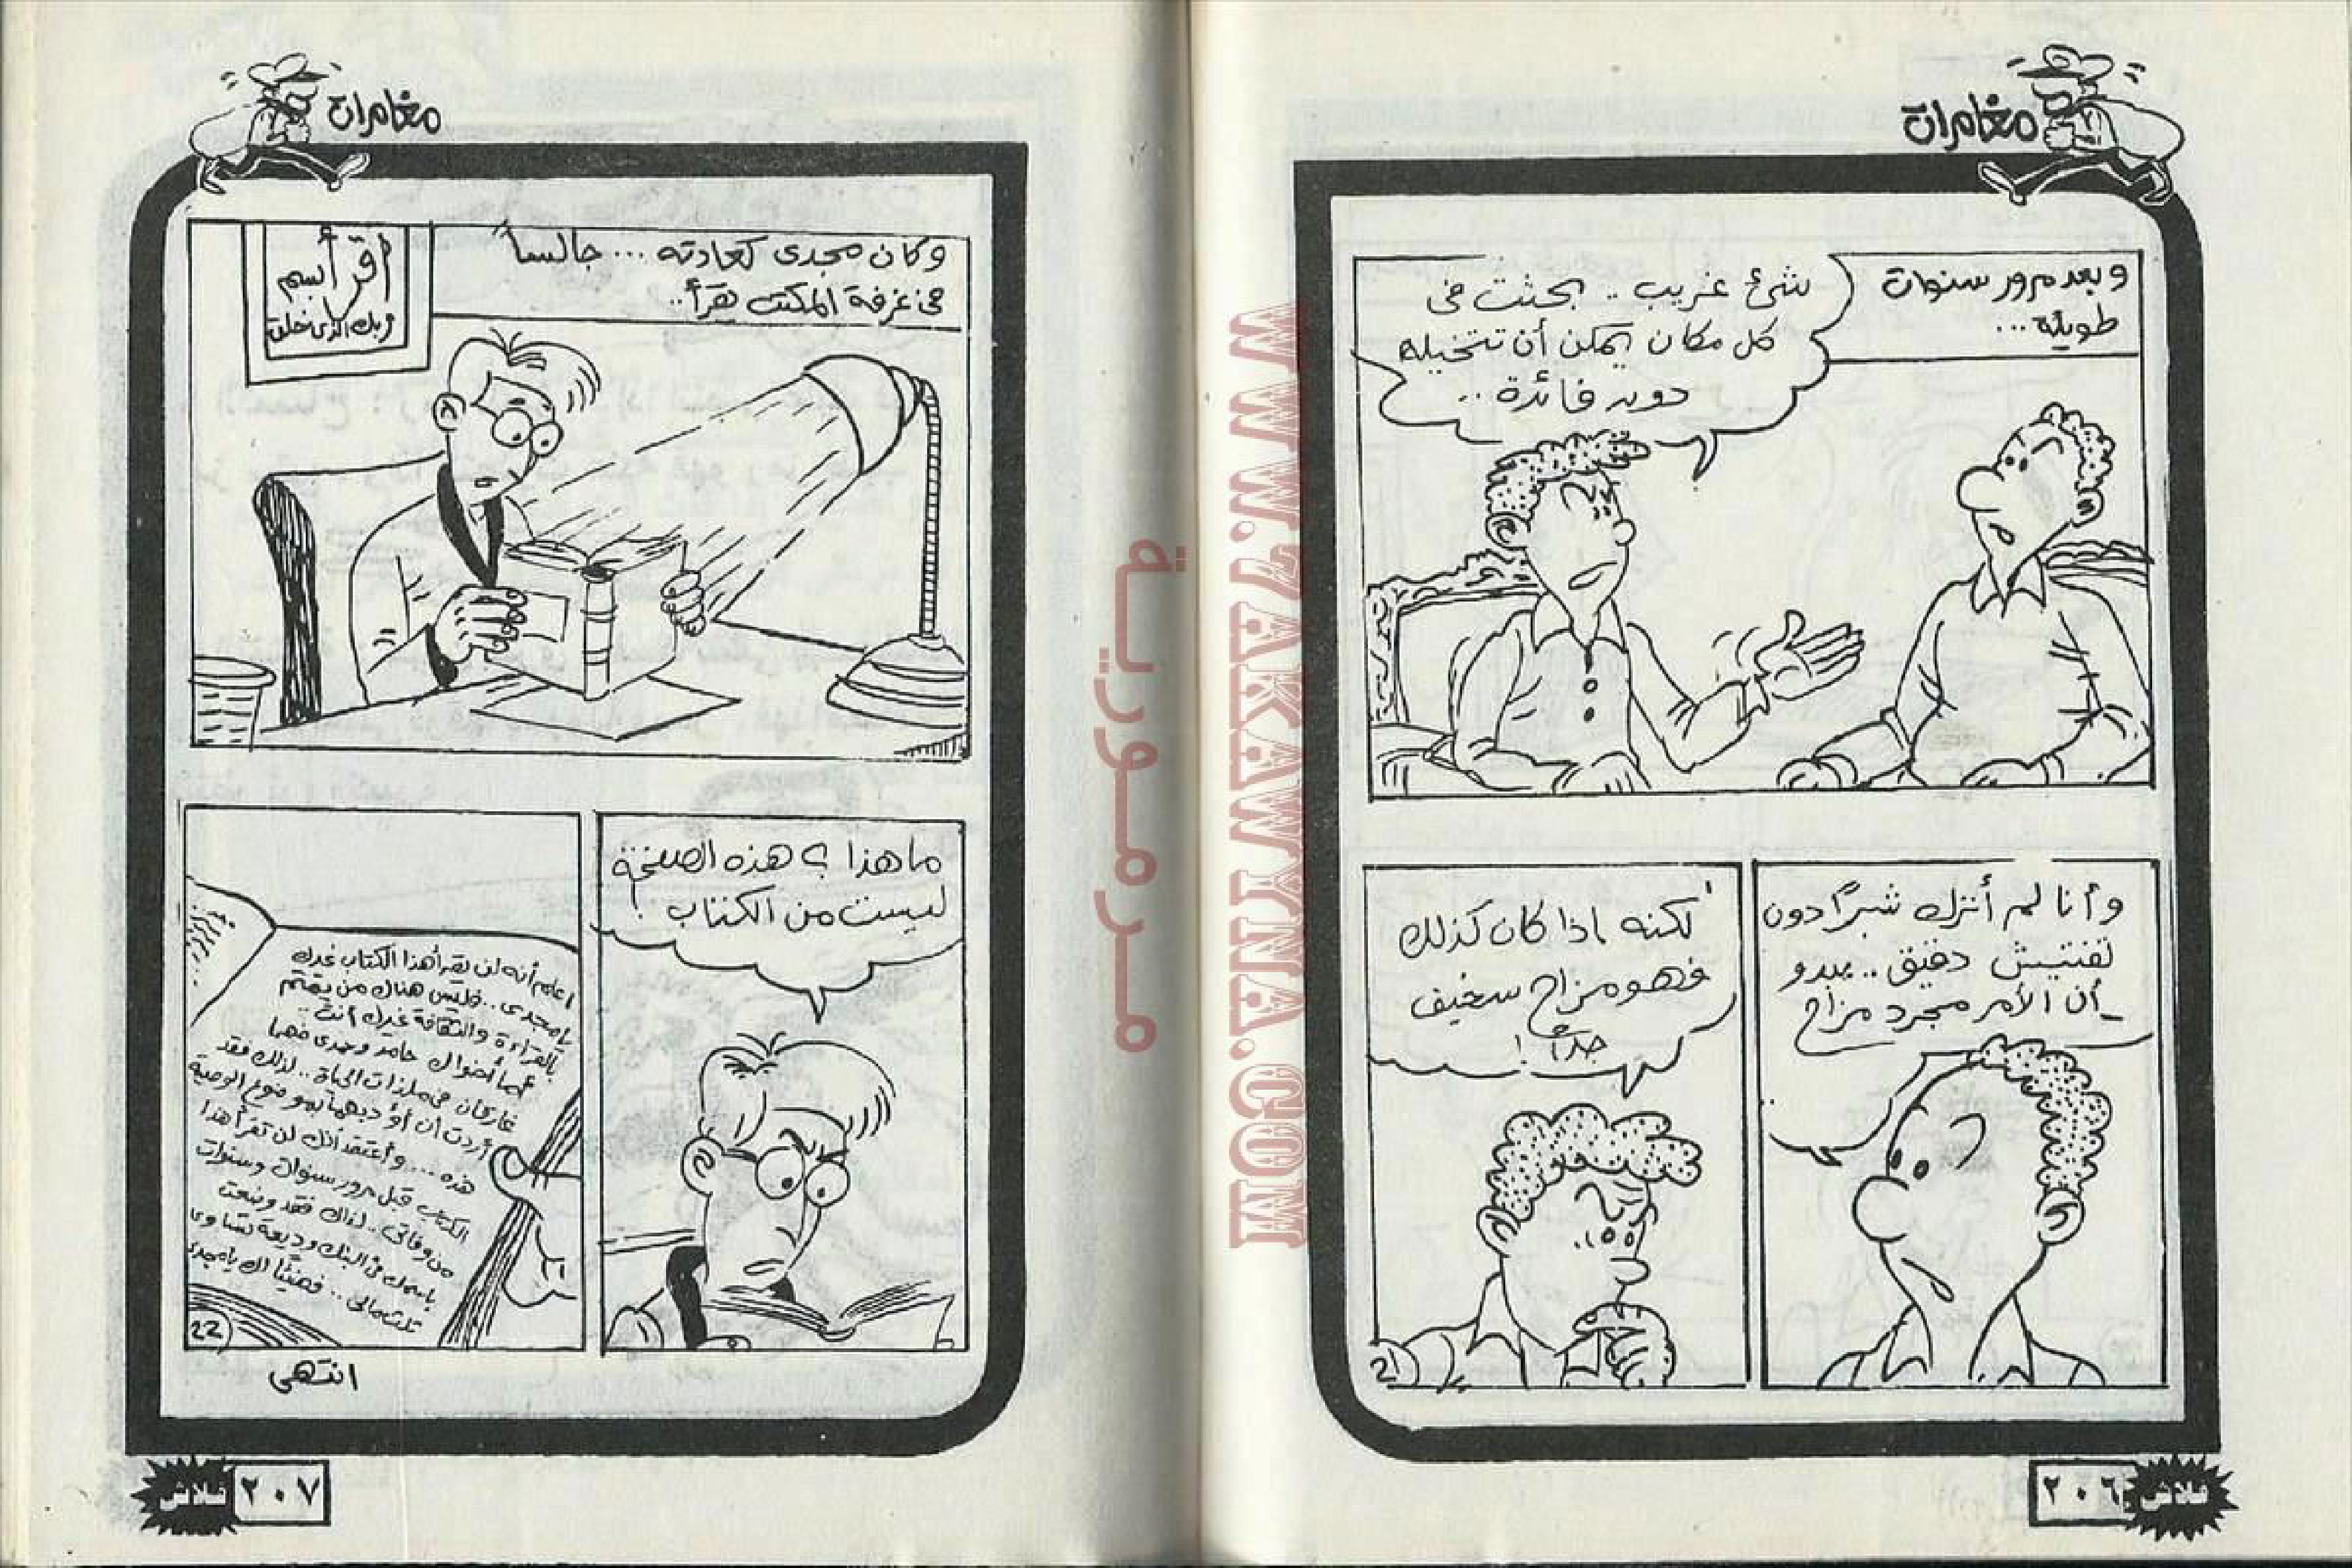 مغامرات
وبعد مرور سنوات
طويلة...
شئ غريب.. بحثت فى
كل مكان يمكن أن تتخيله
دون فائدة..
وأنا لم أترك شبرًا دون
تفتيش دقيق.. يبدو
أن الأمر مجرد مزاح
لكنه إذا كان كذلك
فهو مزاح سخيف
جدًا!
21
٢٠٦
فلاش
مغامرات
وكان مجدى كعادته... جالساً
فى غرفة المكتب يقرأ..
اقرأ بسم
ربك الذى خلق
ما هذا؟ هذه الصفحة
ليست من الكتاب!
اعلم أنه لن يقرأ هذا الكتاب غيرك
يا مجدى.. فليس هناك من يهتم
بالقراءة والثقافة غيرك أنت..
أما أخواك حامد وحمدى فهما
غارقان فى ملذات الحياة.. لذلك فقد
أردت أن أؤدبهما بموضوع الوصية
هذه... وأعتقد أنك لن تقرأ هذا
الكتاب قبل مرور سنوات وسنوات
من وفاتى.. لذلك فقد وضعت
باسمك فى البنك وديعة تساوى
ثلث مالى.. فهنيئًا لك يا مجدى
22
انتهى
٢٠٧
فلاش
مرمورية
WWW.7AKAWYNA.COM